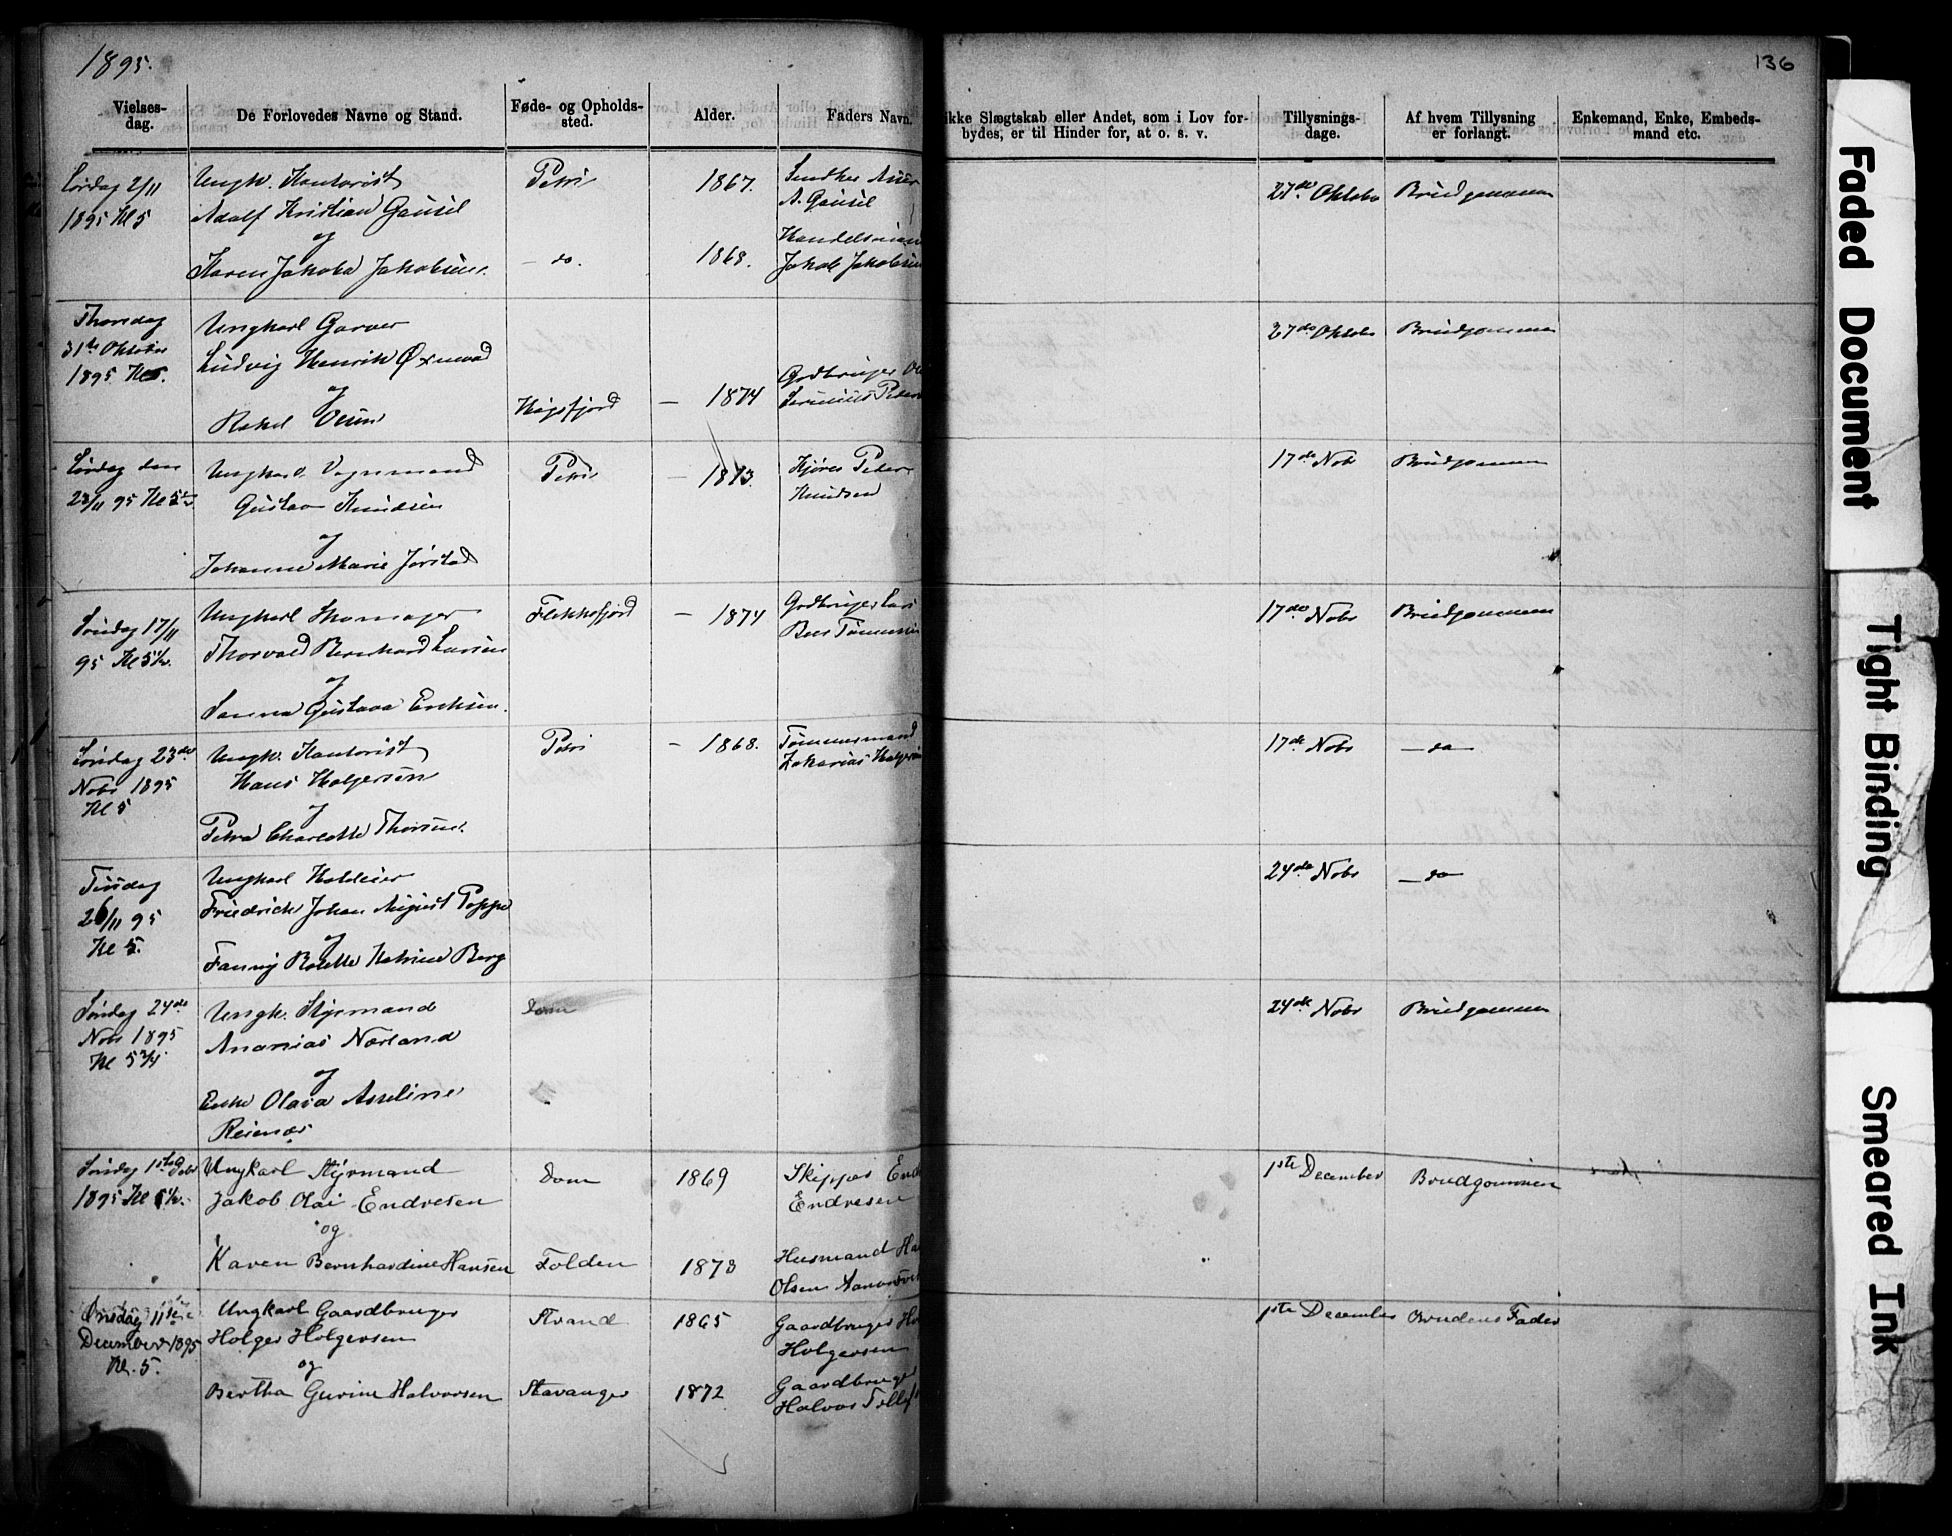 1895.
136
Vielses-
dag.
De Forlovedes Navne og Stand.
Føde- og Opholds-
sted.
Alder.
Faders Navn.
ikke Slægtskab eller Andet, som i Lov for-
bydes, er til Hinder for, at o. s. v.
Tillysnings-
dage.
Af hvem Tillysning
er forlangt.
Enkemand, Enke, Embeds-
mand etc.
Lørdag 2/11
1895 Kl 5
Ungk. Kontorist
Adolf Kristian Gausel
og
Karen Jakoba Jakobsen.
Petri
– do.
1867.
1868.
A. Gausel
Handelsman
Jakob Jakobsen
27de Oktober
Brudgommen
Thorsdag
31te Oktober
1895 Kl 5.
Ungkarl Garver
Ludvig Henrik Øxnevad
og
Rakel Olsen
Høgsfjord
– 1874
Grdbruger
27de Oktober
Brudgommen
Lørdag den
23/11 95 Kl 5½
Ungkarl Vognmand
Gustav Knudsen
og
Johanne Marie Jørstad
Petri
– 1873.
Kjører Peder
Knudsen
17de Nobr
Brudgommen
Søndag 17/11
95 Kl 5½.
Ungkarl Skomager
Thorvald Bernhard Larsen
og
Sanna Gustava Eriksen.
Flekkefjord
– 1874
Grdbruger Lars
17de Nobr
Brudgommen
Lørdag 23de
Nobr 1895
Kl 5
Ungk. Kontorist
Hans Holgersen
og
Petra Charlotte Thorsen.
Petri
– 1868.
Tømmermand
Zakarias Holgersen
17de Nobr
– do –
Tirsdag
26/11 95
Kl 5.
Ungkarl Hotelier
Friedrich Johan August Poppe
og
Fanny Rolette Katrine Berg
24de Nobr
– do –
Søndag 24de
Nobr 1895
Kl 5¾
Ungk. Styrmand
Ananias Nærland
og
Enke Olava Asseline
Reienæs
Dom
24de Nobr
Brudgommen
Søndag 1ste Debr
1895 Kl 5½.
Ungkarl Styrmand
Jakob Olai Endresen
og
Karen Bernhardine Hansen
Dom
Folden
1869
1873
Skipper
Endresen
Husmand
Olsen
1ste December
Brudgommen
Onsdag 11te
December 1895
Kl. 5.
Ungkarl Gaardbruger
Holger Holgersen
og
Bertha Gurine Halvorsen
Strand
Stavanger
1865
1872
Gaardbruger
Holgersen
Gaardbruger
Halvor
1ste December
Brudens Fader
Faded Document
Tight Binding
Smeared Ink